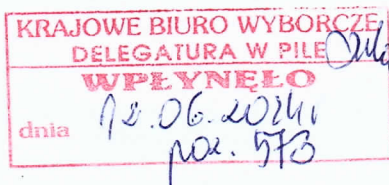 KRAJOWE BIURO WYBORCZE
DELEGATURA W PILE
WPŁYNĘŁO
dnia 12.06.2024r
poz. 573